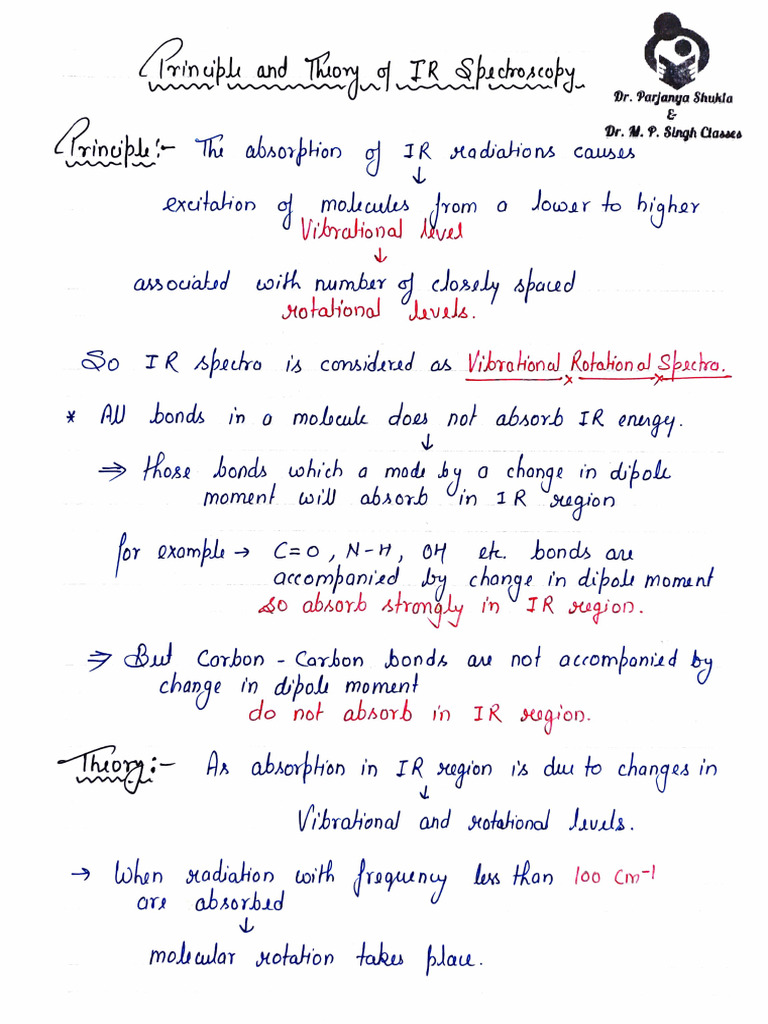 Principle and Theory of IR Spectroscopy
Dr. Parjanya Shukla
&
Dr. M. P. Singh Classes
Principle:- The absorption of IR radiations causes
↓
excitation of molecules from a lower to higher
Vibrational level
↓
associated with number of closely spaced
rotational levels.
So IR spectra is considered as Vibrational Rotational Spectra.
* All bonds in a molecule does not absorb IR energy.
↓
⇒ those bonds which a made by a change in dipole
moment will absorb in IR region
for example → C=O, N-H, OH etc. bonds are
accompanied by change in dipole moment
so absorb strongly in IR region.
⇒ But Carbon - Carbon bonds are not accompanied by
change in dipole moment
do not absorb in IR region.
Theory:- As absorption in IR region is due to changes in
↓
Vibrational and rotational levels.
→ When radiation with frequency less than 100 Cm⁻¹
are absorbed
↓
molecular rotation takes place.